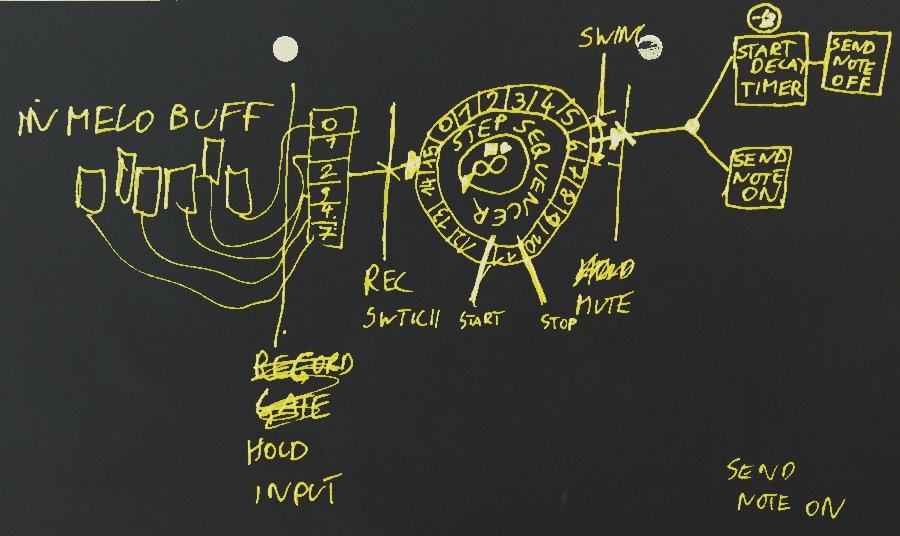 SWING
START
DECAY
TIMER
SEND
NOTE
OFF
IN MELO BUFF
0
2
4
7
0 1 2 3 4 5 6 7 8 9 10 11 12 13 14 15
STEP SEQUENCER
SEND
NOTE
ON
REC
SWTICH
START
STOP
MUTE
RECORD
GATE
HOLD
INPUT
SEND
NOTE ON